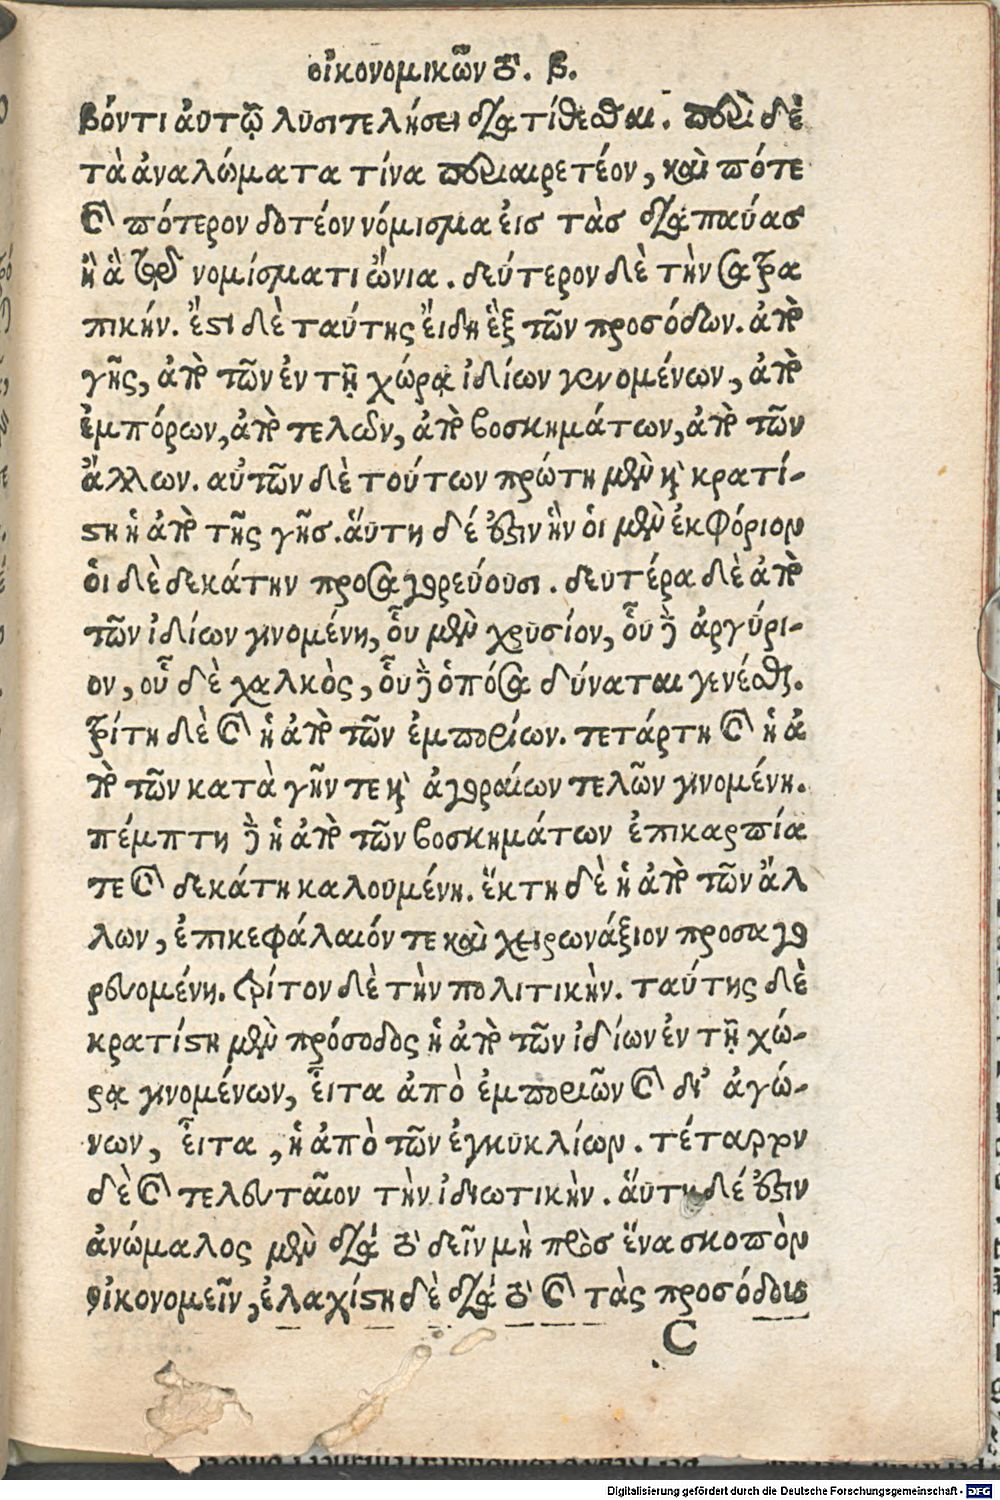 οἰκονομικῶν τὸ. β.
βόντι αὐτῷ λυσιτελήσει διατίθεσθαι. περὶ δὲ
τὰ ἀναλώματα τίνα περιαιρετέον, καὶ πότε
καὶ πότερον δοτέον νόμισμα εἰσ τὰσ δαπαύασ
ἢ ἃ ἀντὶ νομίσματι ὤνια. δεύτερον δὲ τὴν σατρα
πικήν. ἔστι δὲ ταύτης ἔιδη ἓξ τῶν προσόδων. ἀπὸ
γῆς, ἀπὸ τῶν ἐν τῇ χώρᾳ ἰδίων γενομένων, ἀπὸ
ἐμπόρων, ἀπὸ τελῶν, ἀπὸ βοσκημάτων, ἀπὸ τῶν
ἄλλων. αὐτῶν δὲ τούτων πρώτη μὲν καὶ κρατί-
στη ἡ ἀπὸ τῆς γῆσ. ἅυτη δέ ἐστιν ἣν ὁι μὲν ἐκφόριον
ὁι δὲ δεκάτην προσαγορεύουσι. δευτέρα δὲ ἀπὸ
τῶν ἰδίων γινομένη, οὗ μὲν χρυσίον, οὗ δὲ ἀργύρι-
ον, οὗ δὲ χαλκὸς, οὗ δὲ ὁπόσα δύναται γενέσθαι.
τρίτη δὲ καὶ ἡ ἀπὸ τῶν ἐμπορίων. τετάρτη καὶ ἡ ἀ
πὸ τῶν κατὰ γῆν τε καὶ ἀγοραίων τελῶν γινομένη.
πέμπτη δὲ ἡ ἀπὸ τῶν βοσκημάτων ἐπικαρπία
τε καὶ δεκάτη καλουμένη. ἕκτη δὲ ἡ ἀπὸ τῶν ἄλ
λων, ἐπικεφάλαιόν τε καὶ χειρωνάξιον προσαγο
ρευομένη. τρίτον δὲ τὴν πολιτικὴν. ταύτης δὲ
κρατίστη μὲν πρόσοδος ἡ ἀπὸ τῶν ἰδίων ἐν τῇ χώ-
ρᾳ γινομένων, εἶτα ἀπὸ ἐμποριῶν καὶ δι' ἀγώ-
νων, εἶτα, ἡ ἀπὸ τῶν ἐγκυκλίων. τέταρτον
δὲ καὶ τελευταῖον τὴν ἰδιωτικὴν. ἅυτη δέ ἐστιν
ἀνώμαλος μὲν διὰ τὸ δεῖν μὴ πρὸσ ἕνα σκοπὸν
οἰκονομεῖν, ἐλαχίστη δὲ διὰ τὸ καὶ τὰς προσόδους
C
Digitalisierung gefördert durch die Deutsche Forschungsgemeinschaft - DFG